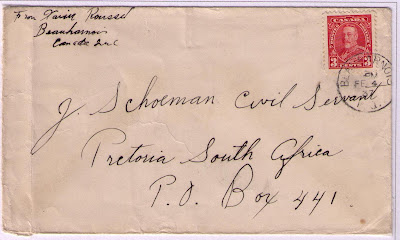 From Xavier Roussel
Beauharnois
Canada Que
CANADA
3 CENTS 3
BEAUHARNOIS
FE 4
P.Q.
J. Schoeman Civil Servant
Pretoria South Africa
P.O. Box 441.